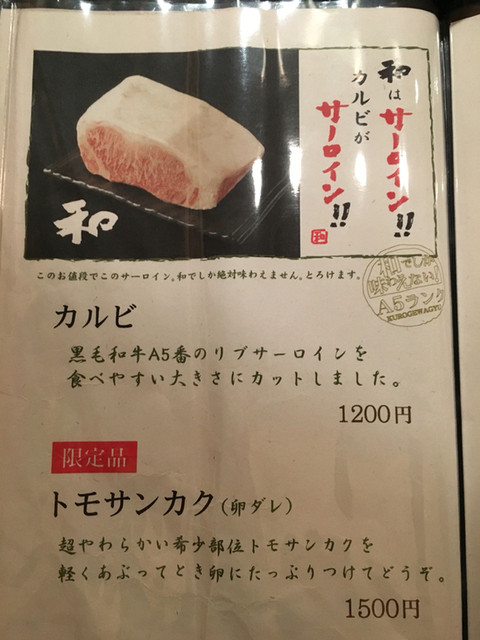 和はサーロイン!!
カルビが
サーロイン!!
和
和
このお値段でこのサーロイン。和でしか絶対味わえません。とろけます。
和でしか
味わえない!
A5ランク
KUROGEWAGYU
カルビ
黒毛和牛A5番のリブサーロインを
食べやすい大きさにカットしました。
1200円
限定品
トモサンカク(卵ダレ)
超やわらかい希少部位トモサンカクを
軽くあぶってとき卵にたっぷりつけてどうぞ。
1500円